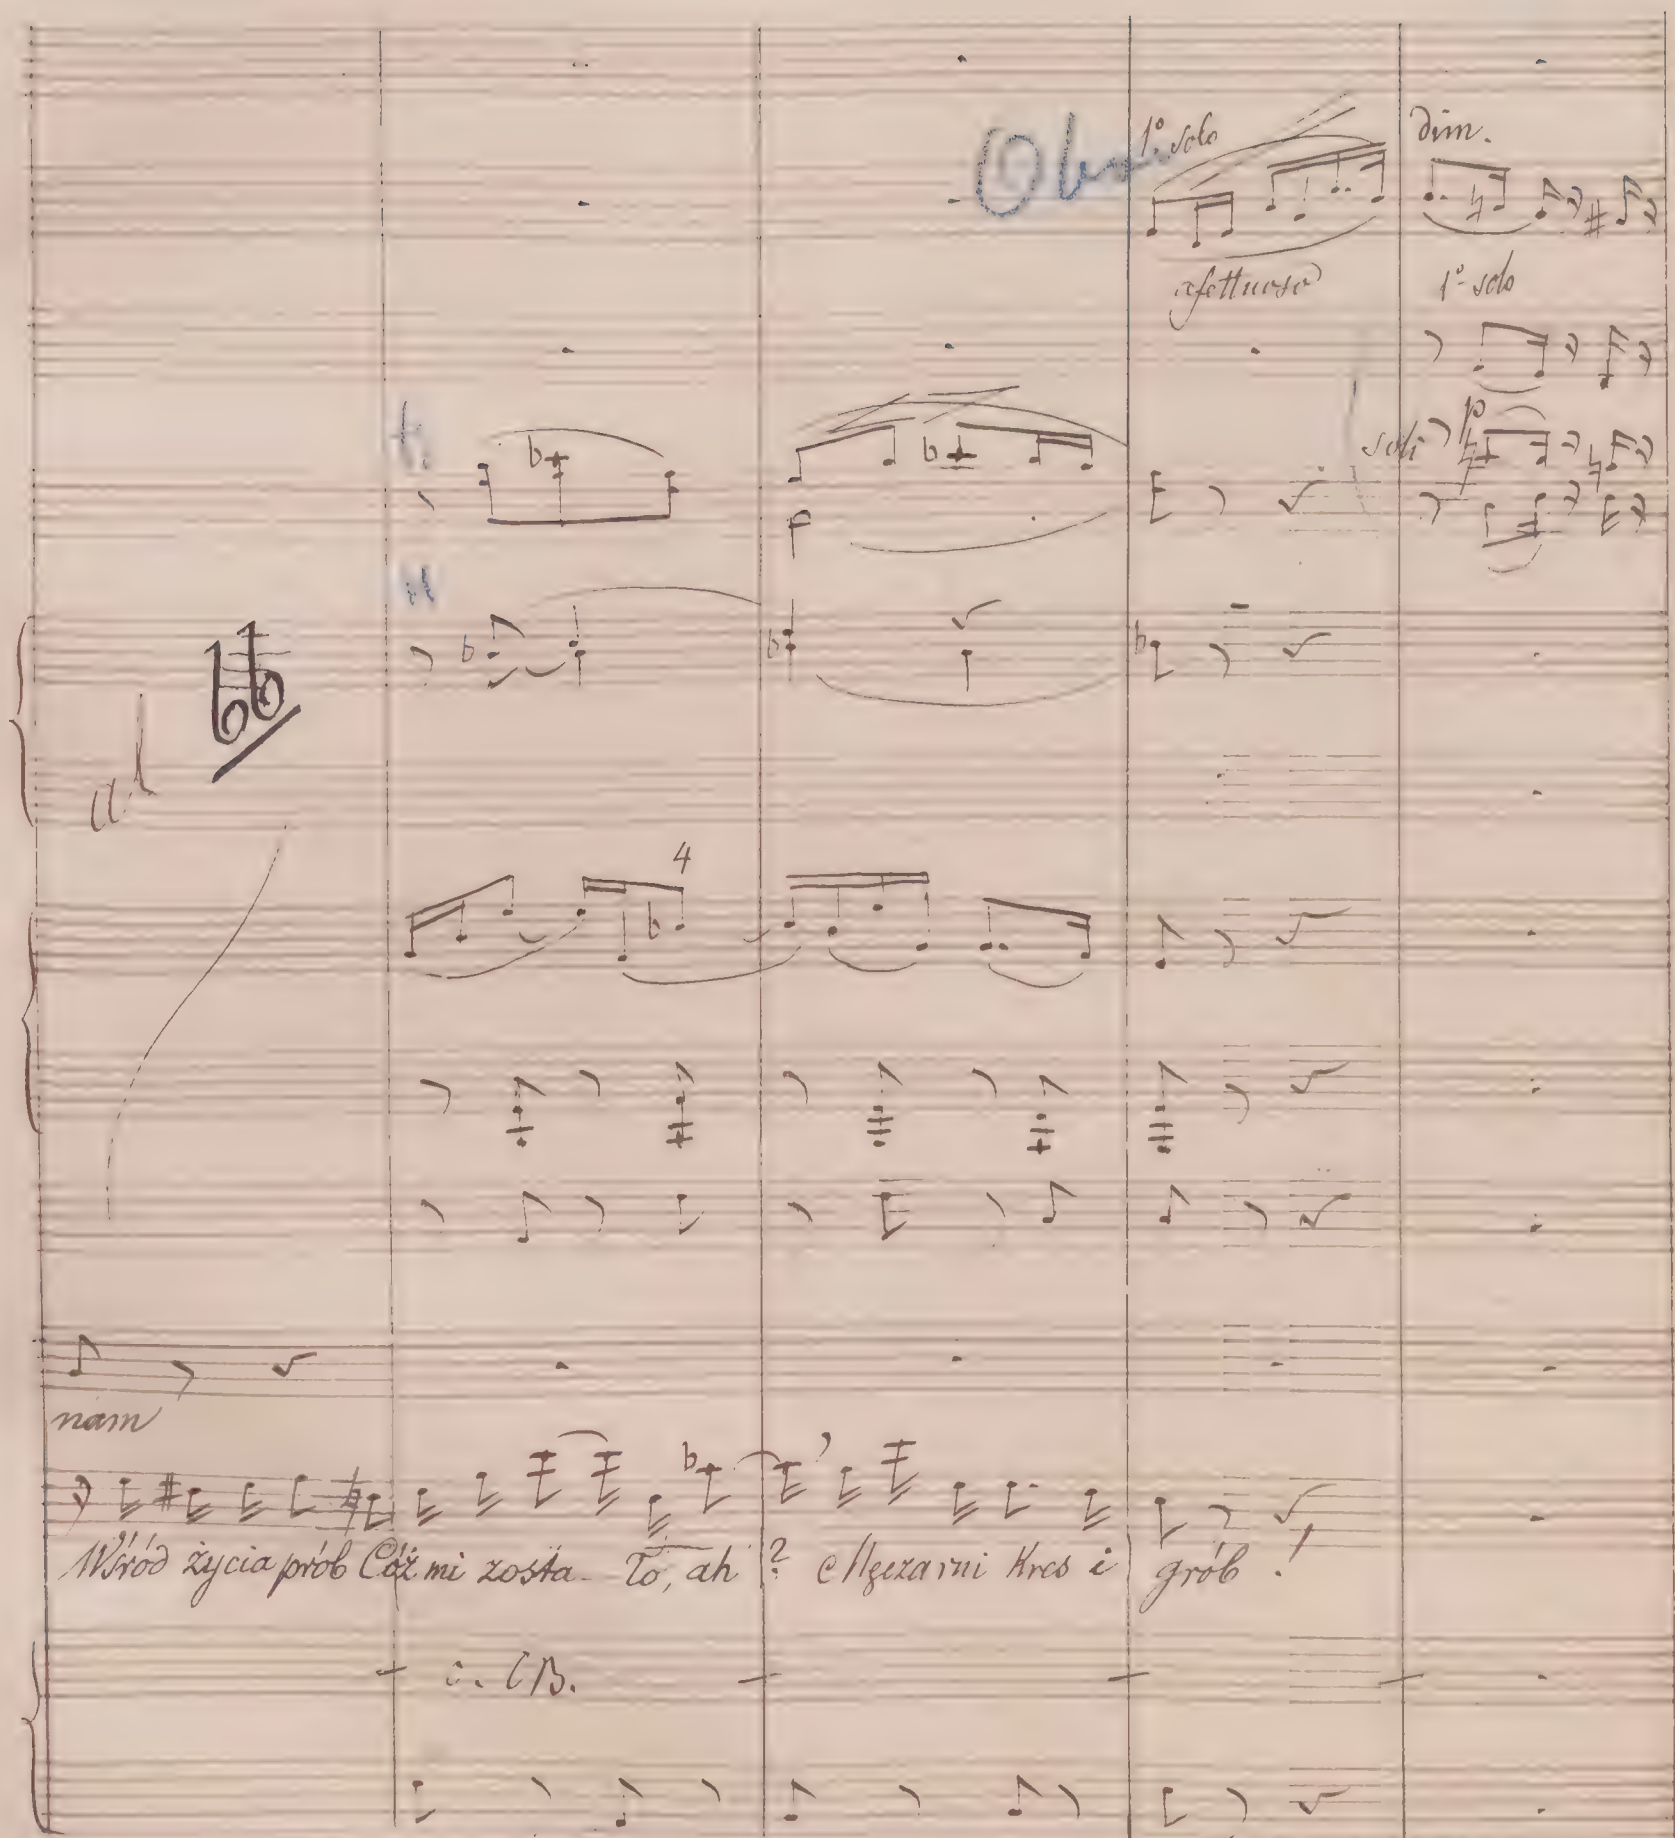 1º solo
dim.
afettuoso
1º solo
p
soli
4
nam
Wśród życia prób Cóż mi zosta- To, ah? kres i grób!
c. CB.